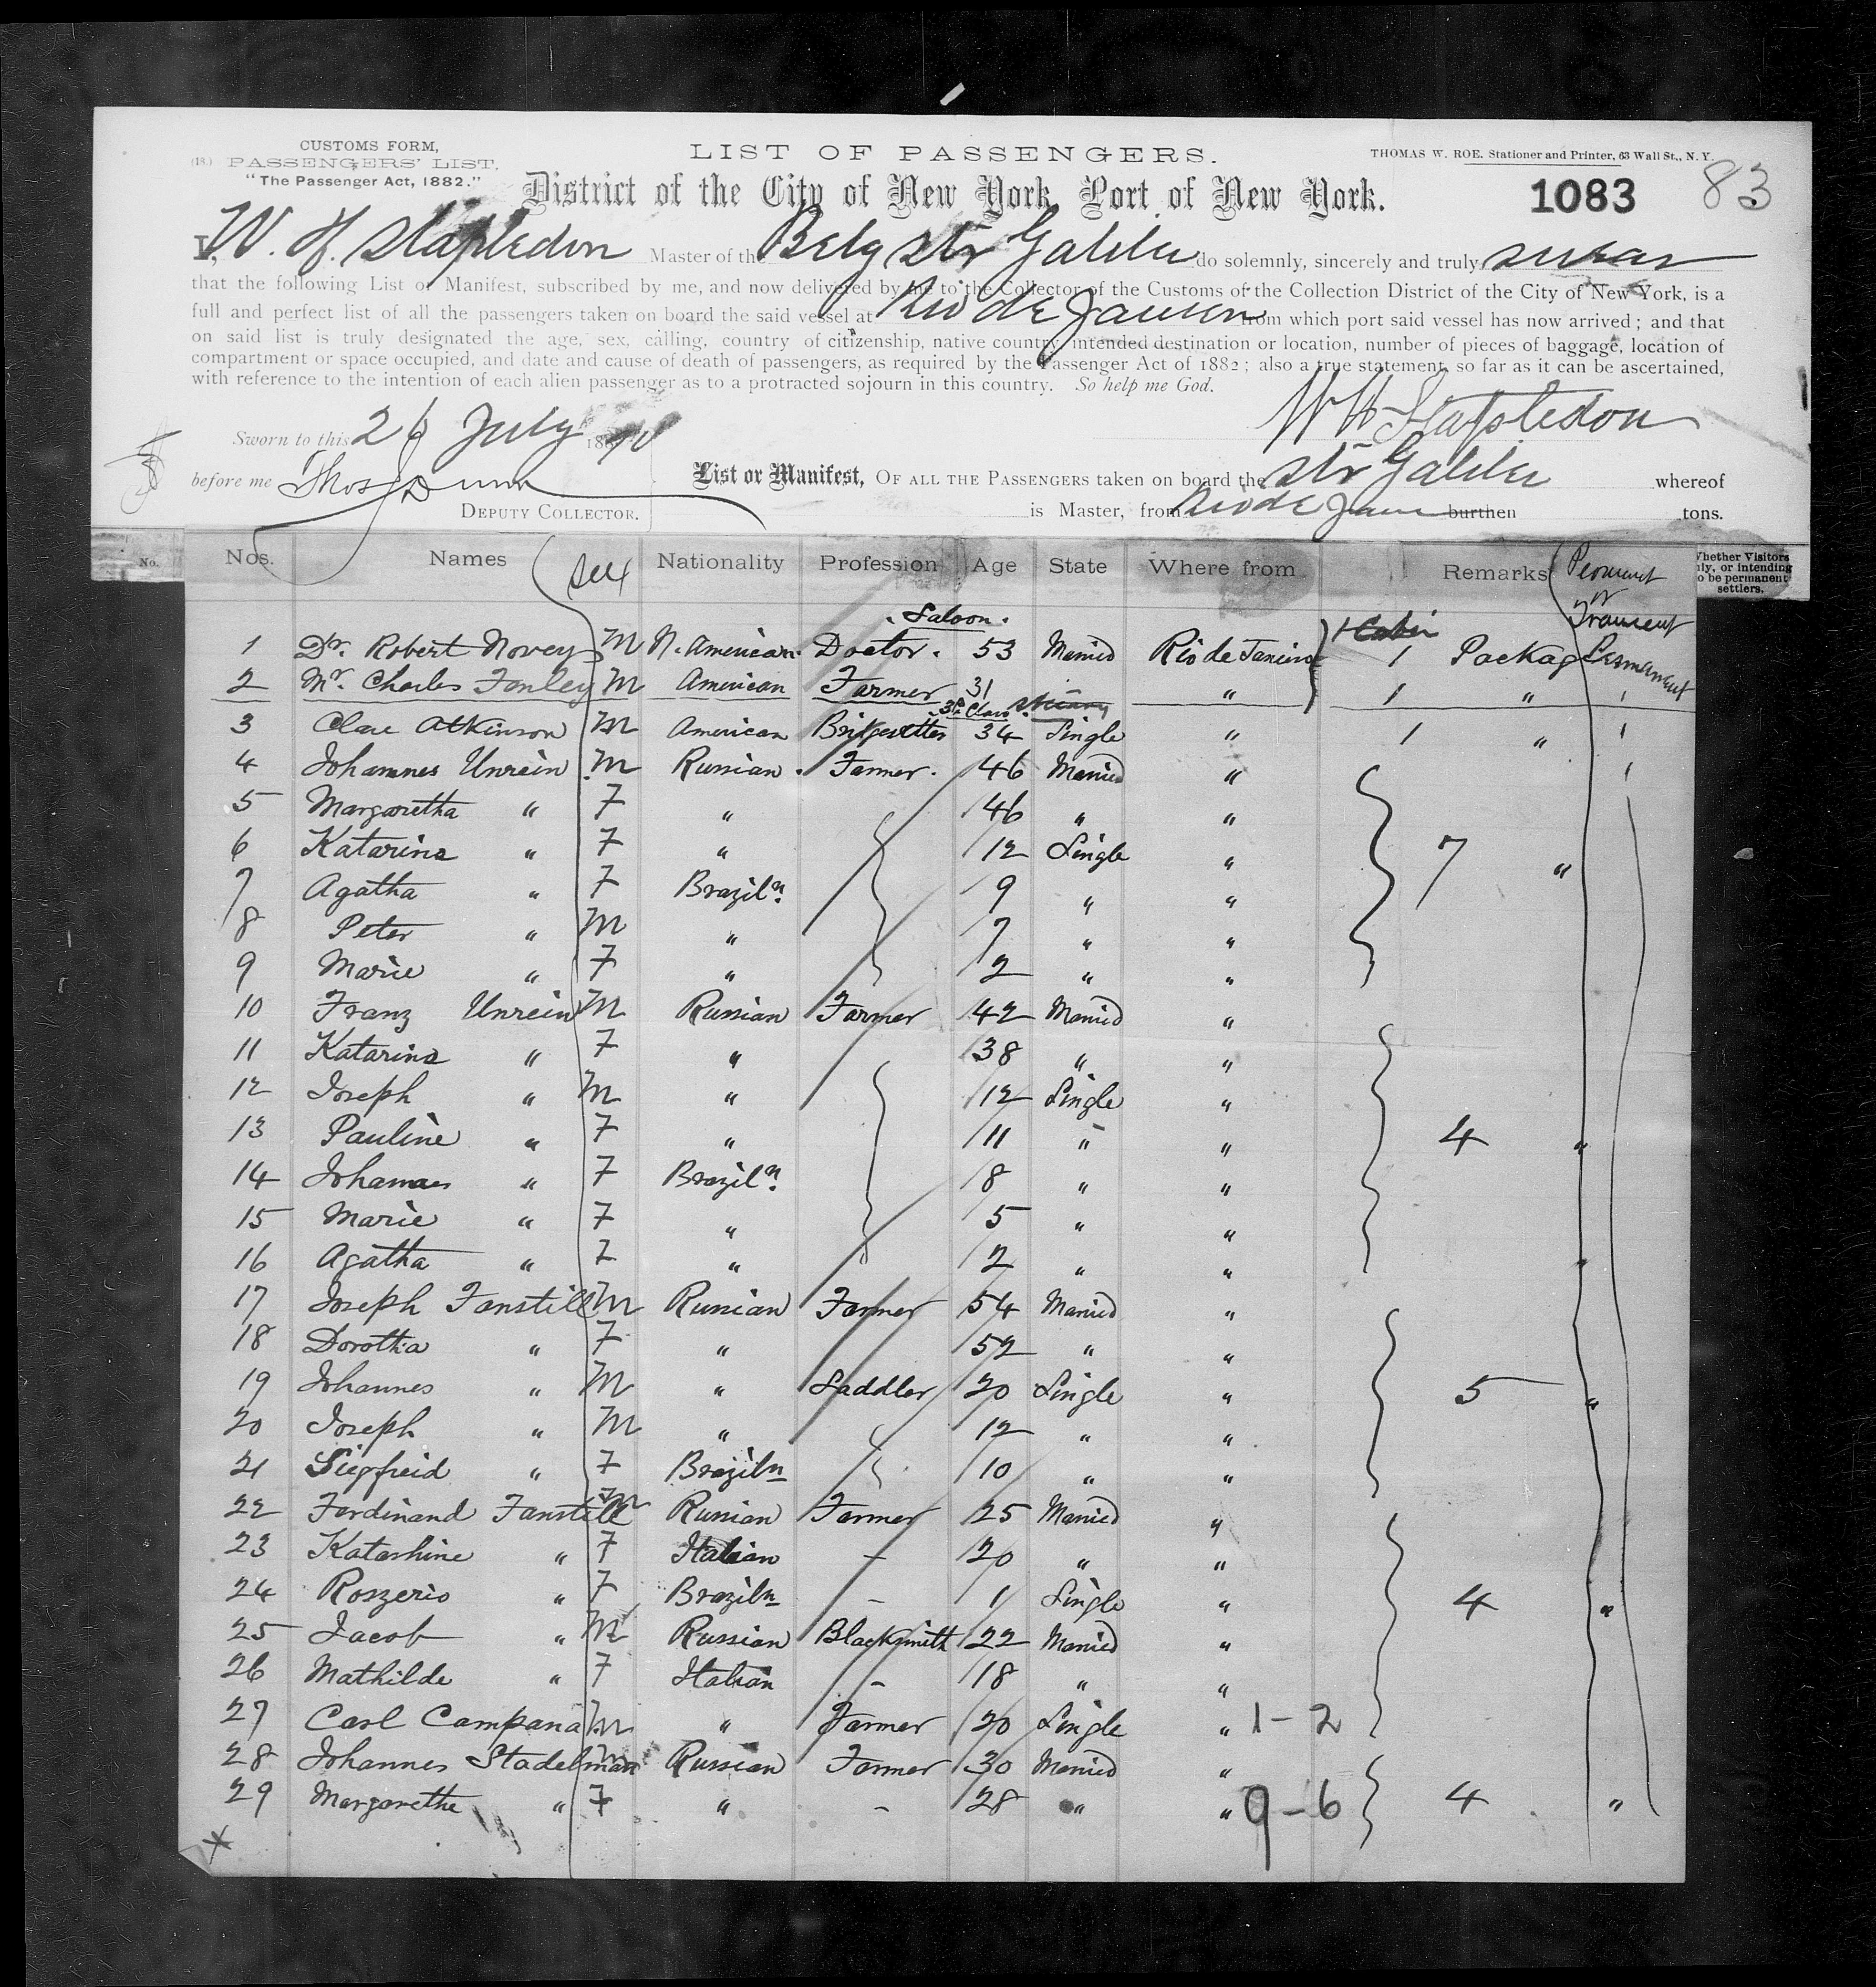 CUSTOMS FORM,
(18.) PASSENGERS' LIST.
"The Passenger Act, 1882."
LIST OF PASSENGERS.
THOMAS W. ROE. Stationer and Printer, 63 Wall St., N. Y.
District of the City of New York, Port of New York.
1083 83
I, W. H. Stapledon Master of the Belg Str Galileo do solemnly, sincerely and truly swear
that the following List or Manifest, subscribed by me, and now delivered by me to the Collector of the Customs of the Collection District of the City of New York, is a
full and perfect list of all the passengers taken on board the said vessel at Rio de Janeiro from which port said vessel has now arrived; and that
on said list is truly designated the age, sex, calling, country of citizenship, native country, intended destination or location, number of pieces of baggage, location of
compartment or space occupied, and date and cause of death of passengers, as required by the Passenger Act of 1882; also a true statement, so far as it can be ascertained,
with reference to the intention of each alien passenger as to a protracted sojourn in this country. So help me God.
W H Stapledon
Sworn to this 26 July 1890
before me Thos J Dunn
DEPUTY COLLECTOR.
List or Manifest, OF ALL THE PASSENGERS taken on board the Str Galileo whereof
is Master, from Rio de Jane burthen tons.
No. Nos. Names Sex Nationality Profession Age State Where from Remarks Perment or Transent
Whether Visitors only, or intending to be permanent settlers.
Saloon. 1 Cabin
1 Dr. Robert Novey M N. American Doctor. 53 Married Rio de Janeiro 1 Package Permanent
2 Mr. Charles Fenley M American Farmer 31 " 1 " '
3d Class
3 Clare Atkinson M American 34 Single " 1 " '
4 Johannes Unrein M Russian Farmer. 46 Married " '
5 Margaretha " F " 46 " "
6 Katarina " F " 12 Single " 7 "
7 Agatha " F Braziln. 9 " "
8 Peter " M " 7 " "
9 Marie " F " 2 " "
10 Franz Unrein M Russian Farmer 42 Married "
11 Katarina " F " 38 " "
12 Joseph " M " 12 Single "
13 Pauline " F " 11 " " 4 "
14 Johannes " F Braziln. 8 " "
15 Marie " F " 5 " "
16 Agatha " F " 2 " " "
17 Joseph Fanstill M Russian Farmer 54 Married "
18 Dorothia " F " 52 " "
19 Johannes " M " Saddler 20 Single " 5 "
20 Joseph " M " 12 " "
21 Siegfreid " F Braziln 10 " "
22 Ferdinand Fanstill M Russian Farmer 25 Married "
23 Katarhine " F Italian - 20 " "
24 Roszerio " F Braziln - 1 Single " 4 "
25 Jacob " M Russian Blacksmith 22 Married "
26 Mathilde " F Italian - 18 " "
27 Carl Campana M " Farmer 20 Single " 1-2
28 Johannes Stadelman M Russian Farmer 30 Married "
29 Margarethe " F " - 28 " " 9-6 4 "